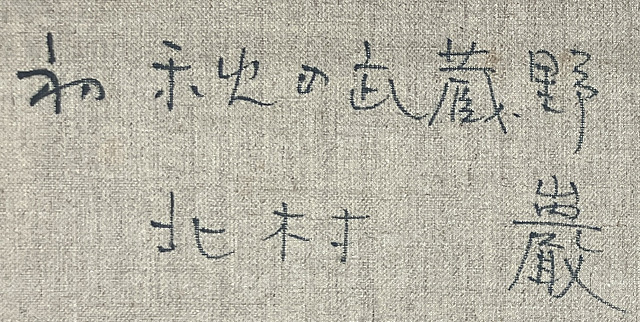 初秋の武蔵野
北村 巌